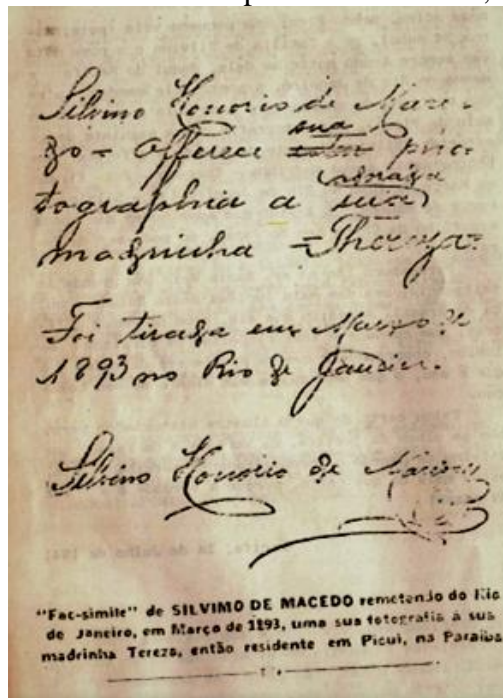 Silvino Honorio de Mace-
do = Offerece sua pho-
tographia a sua
madrinha = Thereza =
Foi tirada em Março de
1893 no Rio de Janeiro.
Silvino Honorio de Macedo
"Fac-simile" de SILVIMO DE MACEDO remetendo do Rio
de Janeiro, em Março de 1893, uma sua fotografia à sua
madrinha Tereza, então residente em Picuí, na Paraíba